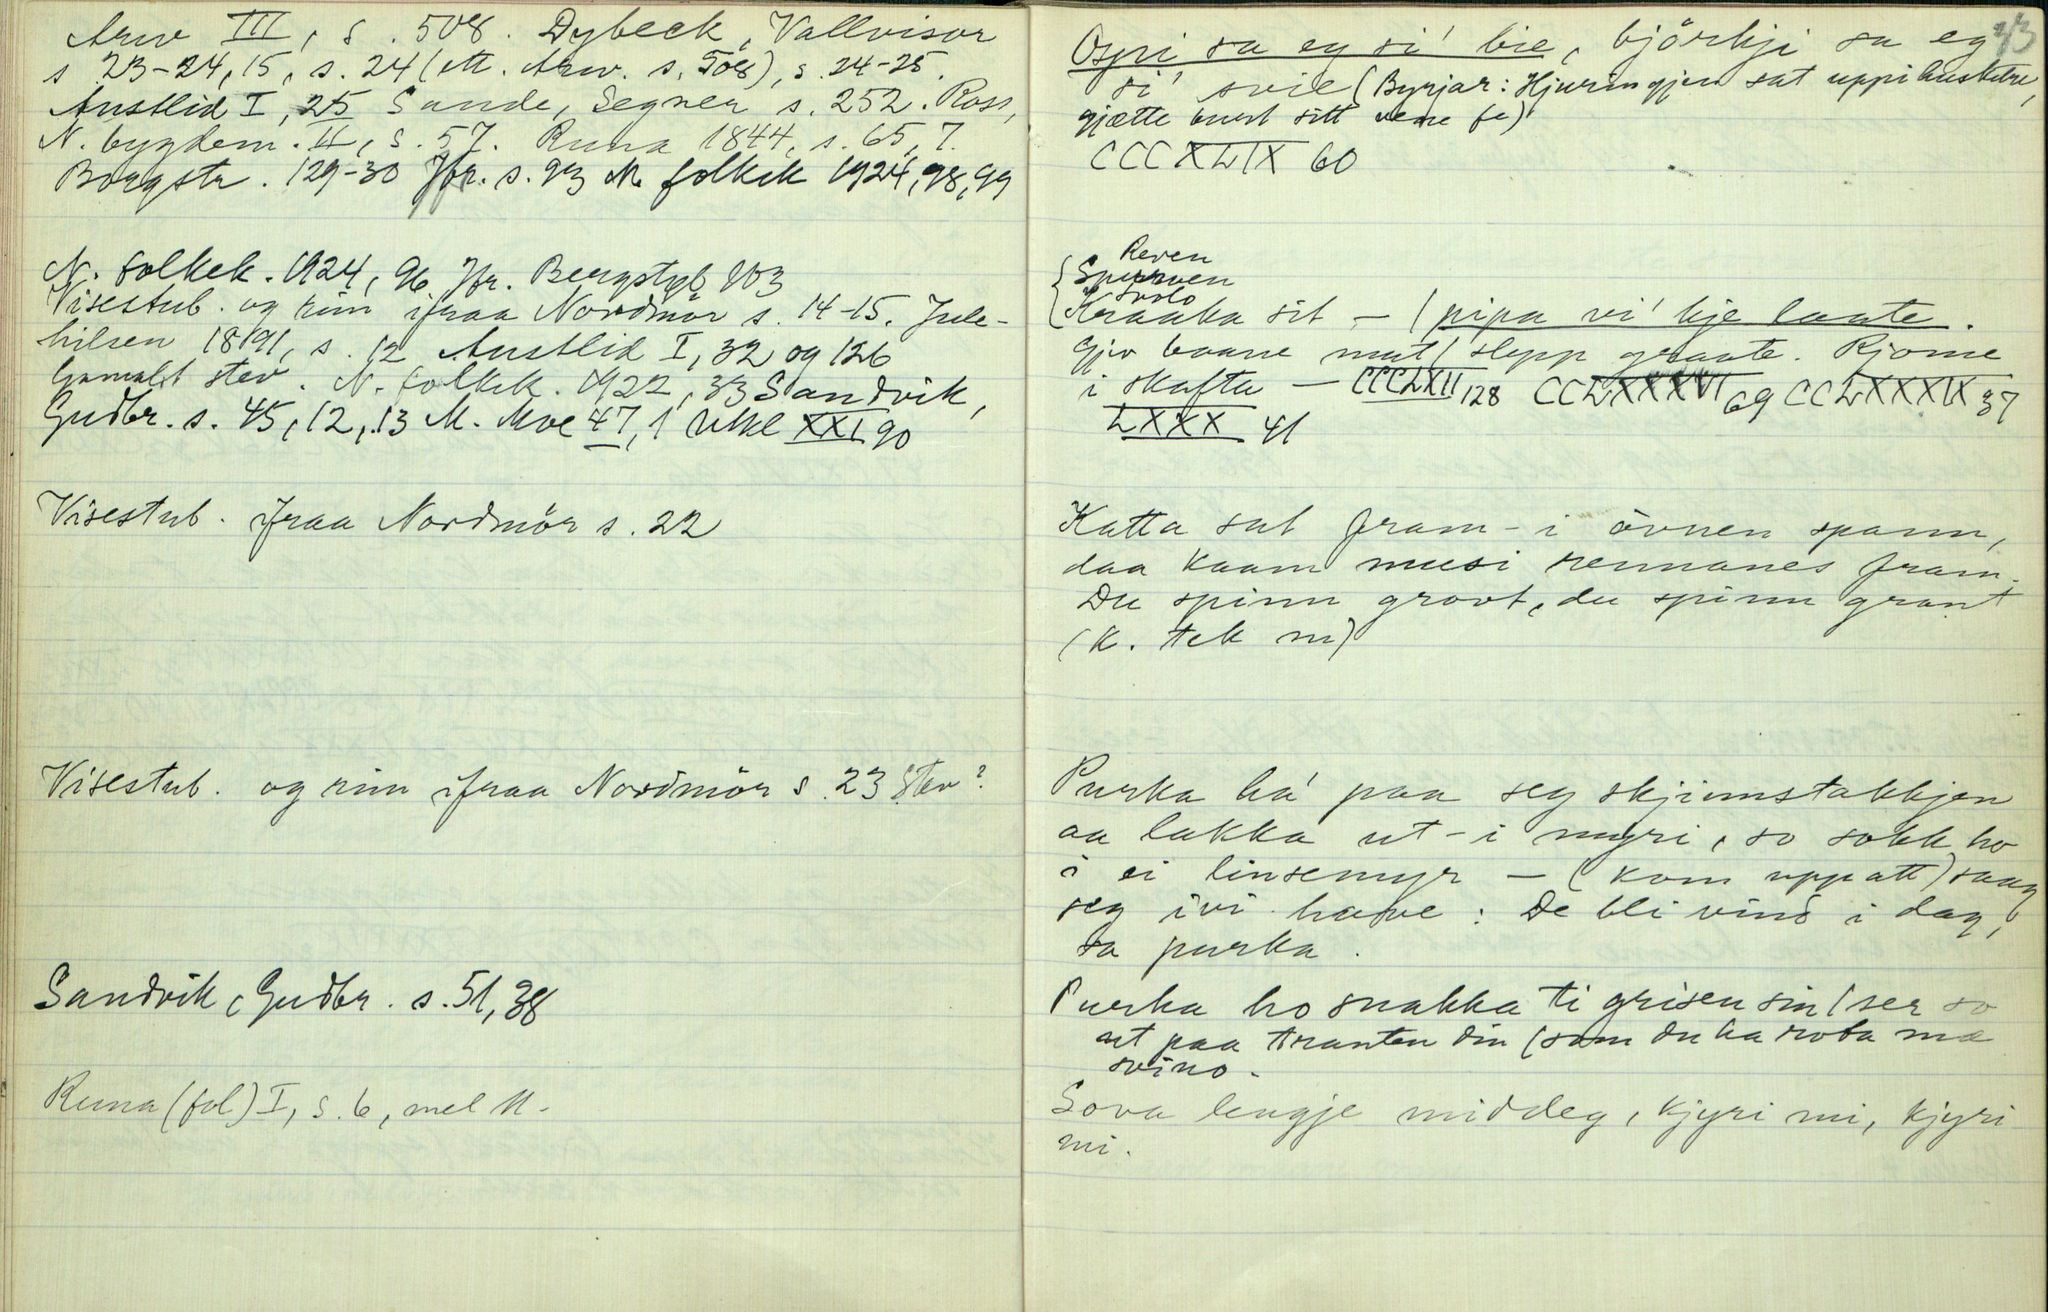 Arw III, s. 508. Dybeck, Vallvisor
s 23-24, 15, s. 24 (ett. Arw. s. 508), s. 24-25.
Austlid I, 25 Sande, Segner s. 252. Ross,
N. bygdem. II, s. 57. Runa 1844, s. 65, 7.
Borgstr. 129-30 Jfr. s. 93 N. folkek 1924, 98, 99
N. folkek. 1924, 96 Jfr. Bergstr 103
Visestub. og rim ifraa Nordmör s. 14-15. Jule-
hilsen 1891, s. 12 Austlid I, 32 og 126
Gamalt stev. N. folkek. 1922, 33 Sandvik,
Gudbr. s. 45, 12, 13 M. Moe 47, 1 Utkl XXI 90
Visestub. ifraa Nordmör s. 22
Visestub. og rim ifraa Nordmör s. 23 Stev?
Sandvik, Gudbr. s. 51, 38
Runa (fol) I, s. 6, mel 11.
43
Ospi sa eg si' bie, björkji sa eg
si' svie (Byrjar: Hjuringjen sat uppi husbetre,
gjætte burt sitt vene fe)
CCCXLIX 60
Reven
Spurven
Svolo
Kraaka sit - / pipa vi' kje laate.
Gjev baane mat / slepp graate. Rjome
i skafta - CCCLXII 128 CCLXXXVI 69 CCLXXXIX 37
LXXX 41
Katta sat fram-i övnen spann,
daa kaam musi rennanes fram.
Du spinn grovt, du spinn grant
(K. tek m)
Purka ha' paa seg skjinnstakkjen
aa lakka ut-i myri, so sokk ho
i ei linsemyr - (kom uppatt) saag
seg ivi have: De bli vind i dag,
sa purka.
Purka ho snakka ti grisen sin / ser so
ut paa tranten din (som du ha rota ma
svino.
Sova lengje middeg, kjyri mi, kjyri
mi.